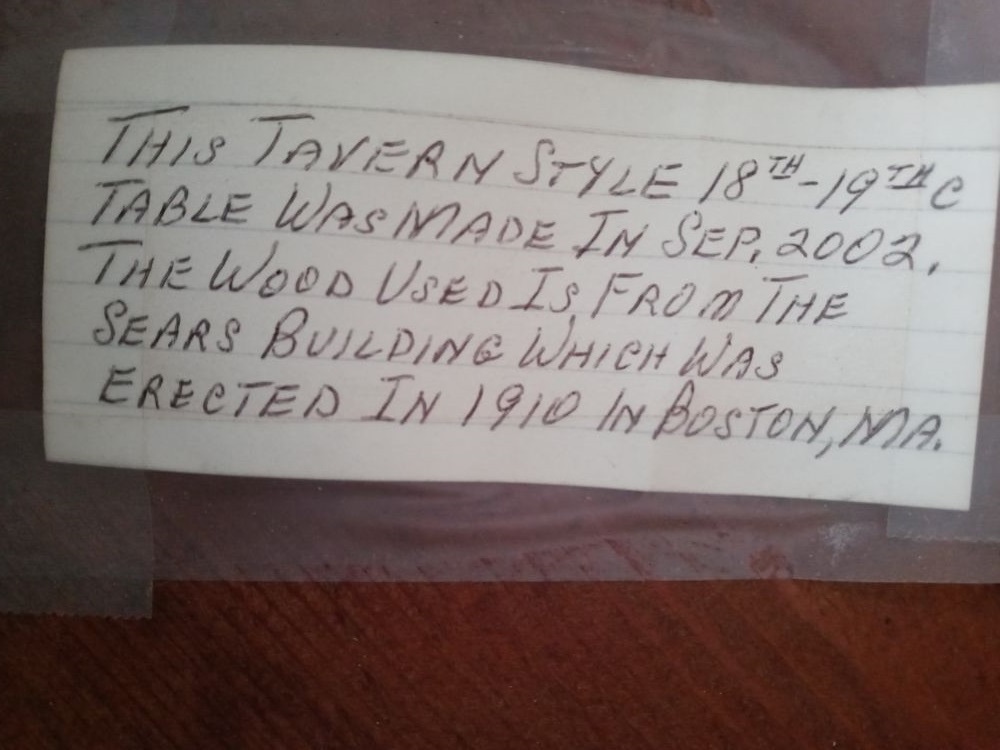 THIS TAVERN STYLE 18TH-19TH C
TABLE WAS MADE IN SEP. 2002.
THE WOOD USED IS FROM THE
SEARS BUILDING WHICH WAS
ERECTED IN 1910 IN BOSTON, MA.